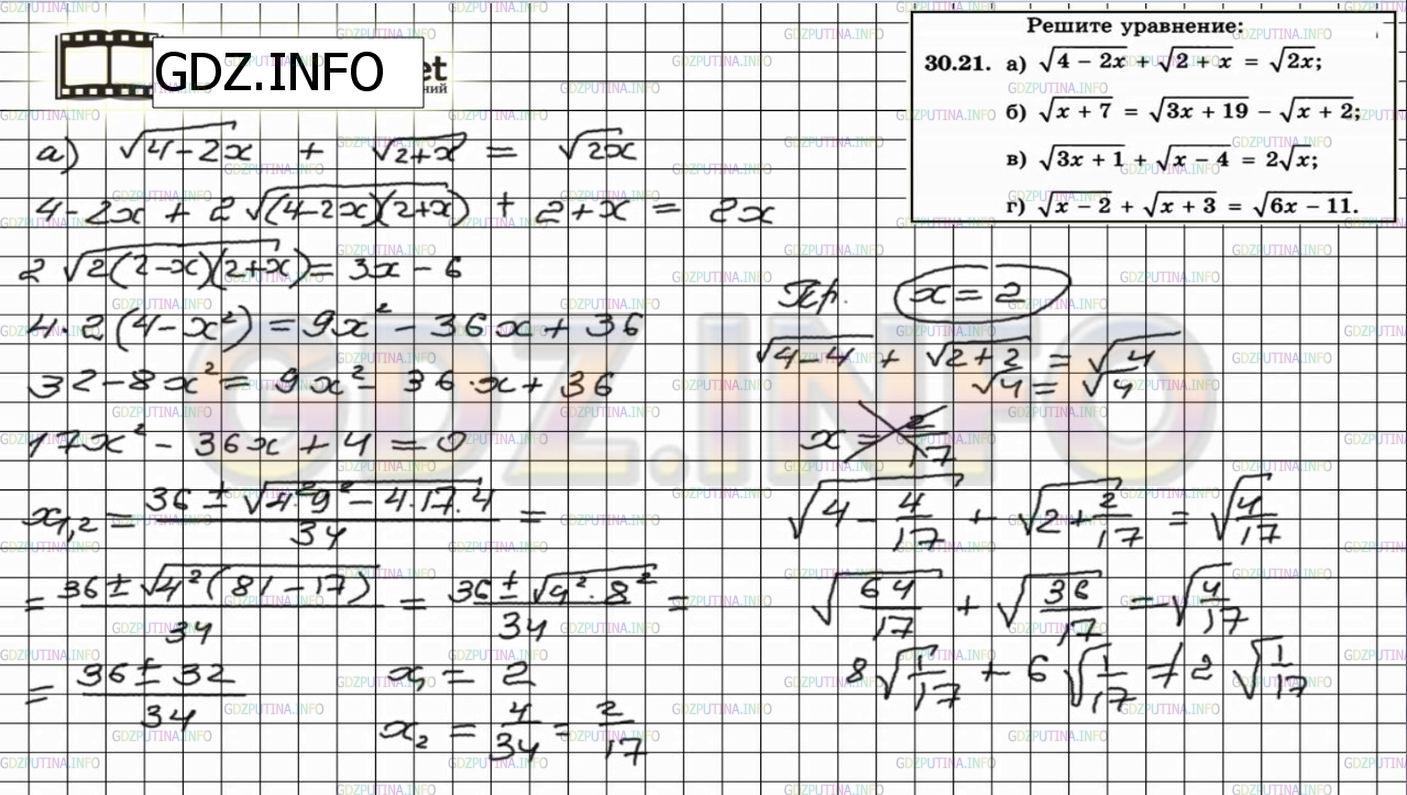 GDZ.INFO
et
ний
Решите уравнение:
30.21. а) √(4 − 2x) + √(2 + x) = √(2x);
б) √(x + 7) = √(3x + 19) − √(x + 2);
в) √(3x + 1) + √(x − 4) = 2√x;
г) √(x − 2) + √(x + 3) = √(6x − 11).
а) √(4−2x) + √(2+x) = √(2x)
4−2x + 2√((4−2x)(2+x)) + 2+x = 2x
2√(2(2−x)(2+x)) = 3x − 6
4·2(4−x²) = 9x² − 36x + 36
32−8x² = 9x² − 36·x + 36
17x² − 36x + 4 = 0
x₁,₂ = (36 ± √(4²9² − 4·17·4))/34 =
= (36 ± √(4²(81−17)))/34 = (36 ± √(4²·8²))/34 =
= (36 ± 32)/34
x₁ = 2
x₂ = 4/34 = 2/17
Пр. x = 2
√(4−4) + √(2+2) = √4
√4 = √4
x = 2/17
√(4 − 4/17) + √(2 + 2/17) = √(4/17)
√(64/17) + √(36/17) = √(4/17)
8√(1/17) + 6√(1/17) ≠ 2√(1/17)
GDZ.INFO
GDZPUTINA.INFO